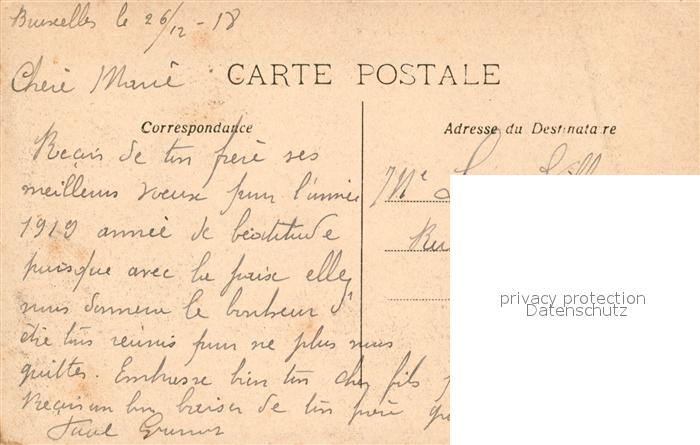 Bruxelles le 26/12-18
Chère Marie
CARTE POSTALE
Correspondance
Adresse du Destinataire
Reçois de ton frère ses
meilleurs voeux pour l'année
1919 année de béatitude
puisque avec la paix elle
nous donnera le bonheur d'
être tous réunis pour ne plus nous
quitter. Embrasse bien ton cher fils
Reçois un bon baiser de ton frère
Mle
privacy protection
Datenschutz